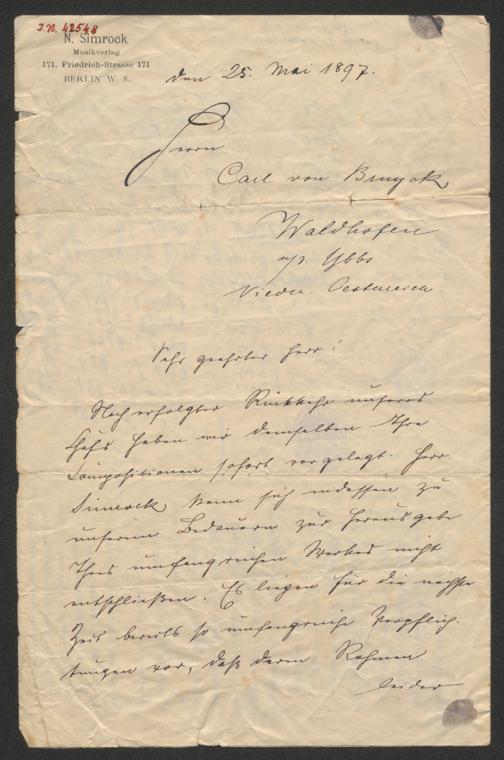 I.N. 42548
N. Simrock
Musikverlag
171. Friedrich-Strasse 171
BERLIN W. 8.
den 25. Mai 1897.
Herrn
Carl von Bruyck
Waldhofen
a/d. Ybbs
Nieder. Oesterreich
Sehr geehrter Herr!
Nach erfolgter Rückkehr unseres
Chefs haben wir demselben Ihre
Compositionen sofort vorgelegt. Herr
Simrock kann sich indessen zu
unserem Bedauern zur Herausgabe
Ihres umfangreichen Werkes nicht
entschließen. Es liegen für die nächste
Zeit bereits so umfangreiche Verpflich-
tungen vor, daß deren Rahmen
leider